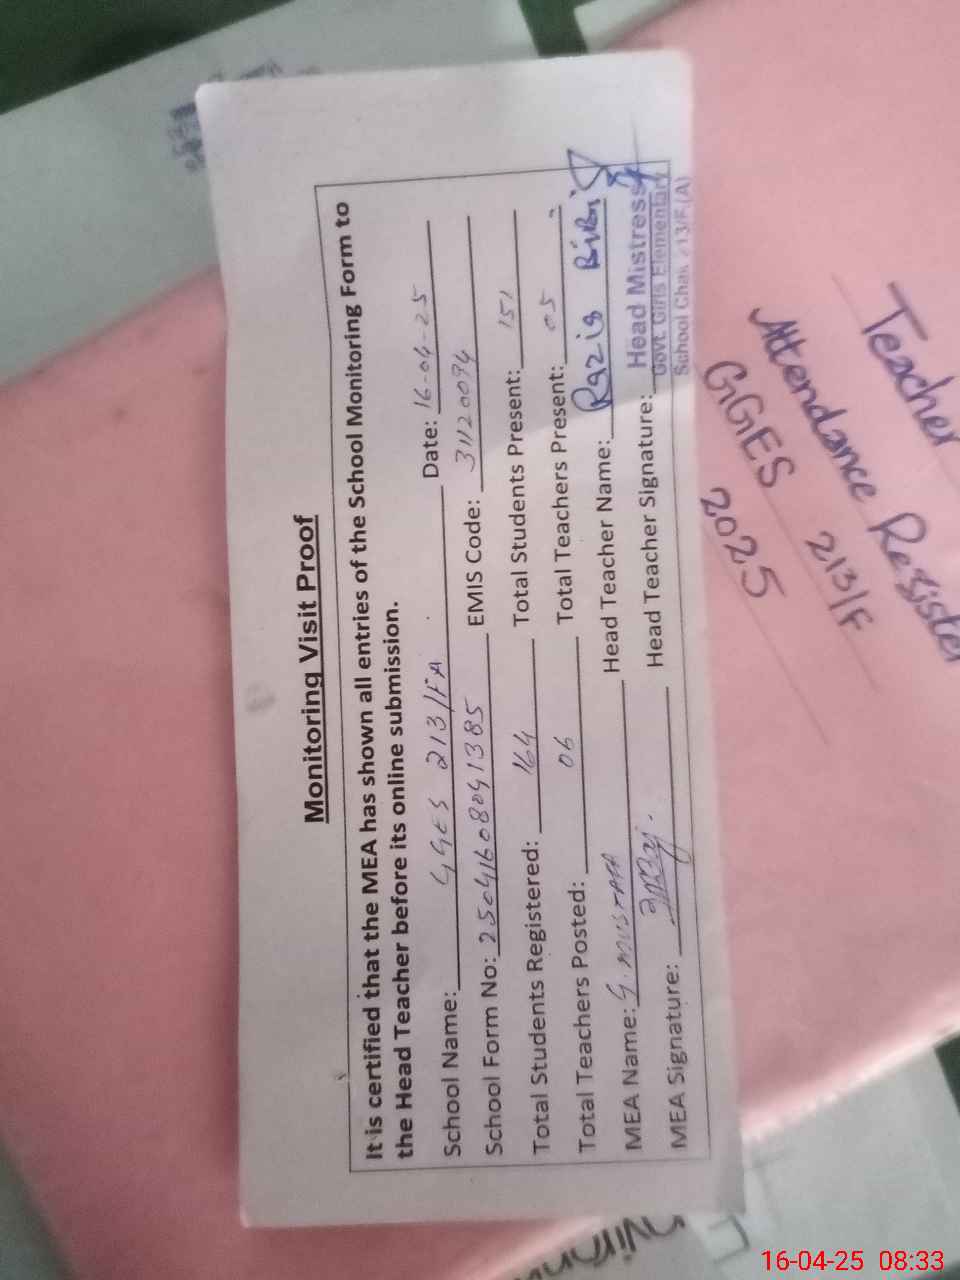 Monitoring Visit Proof
It is certified that the MEA has shown all entries of the School Monitoring Form to
the Head Teacher before its online submission.
School Name: GGES 213/FA Date: 16-04-25
School Form No: 25041608041385 EMIS Code: 31120094
Total Students Registered: 164 Total Students Present: 151
Total Teachers Posted: 06 Total Teachers Present: 05
MEA Name: G. MUSTAFA Head Teacher Name: Razia Bibi
MEA Signature: Head Teacher Signature:
Head Mistress
Govt. Girls Elementary
School Chak 213/F.(A)
Teacher
Attendance Register
GGES 213/F
2025
16-04-25 08:33